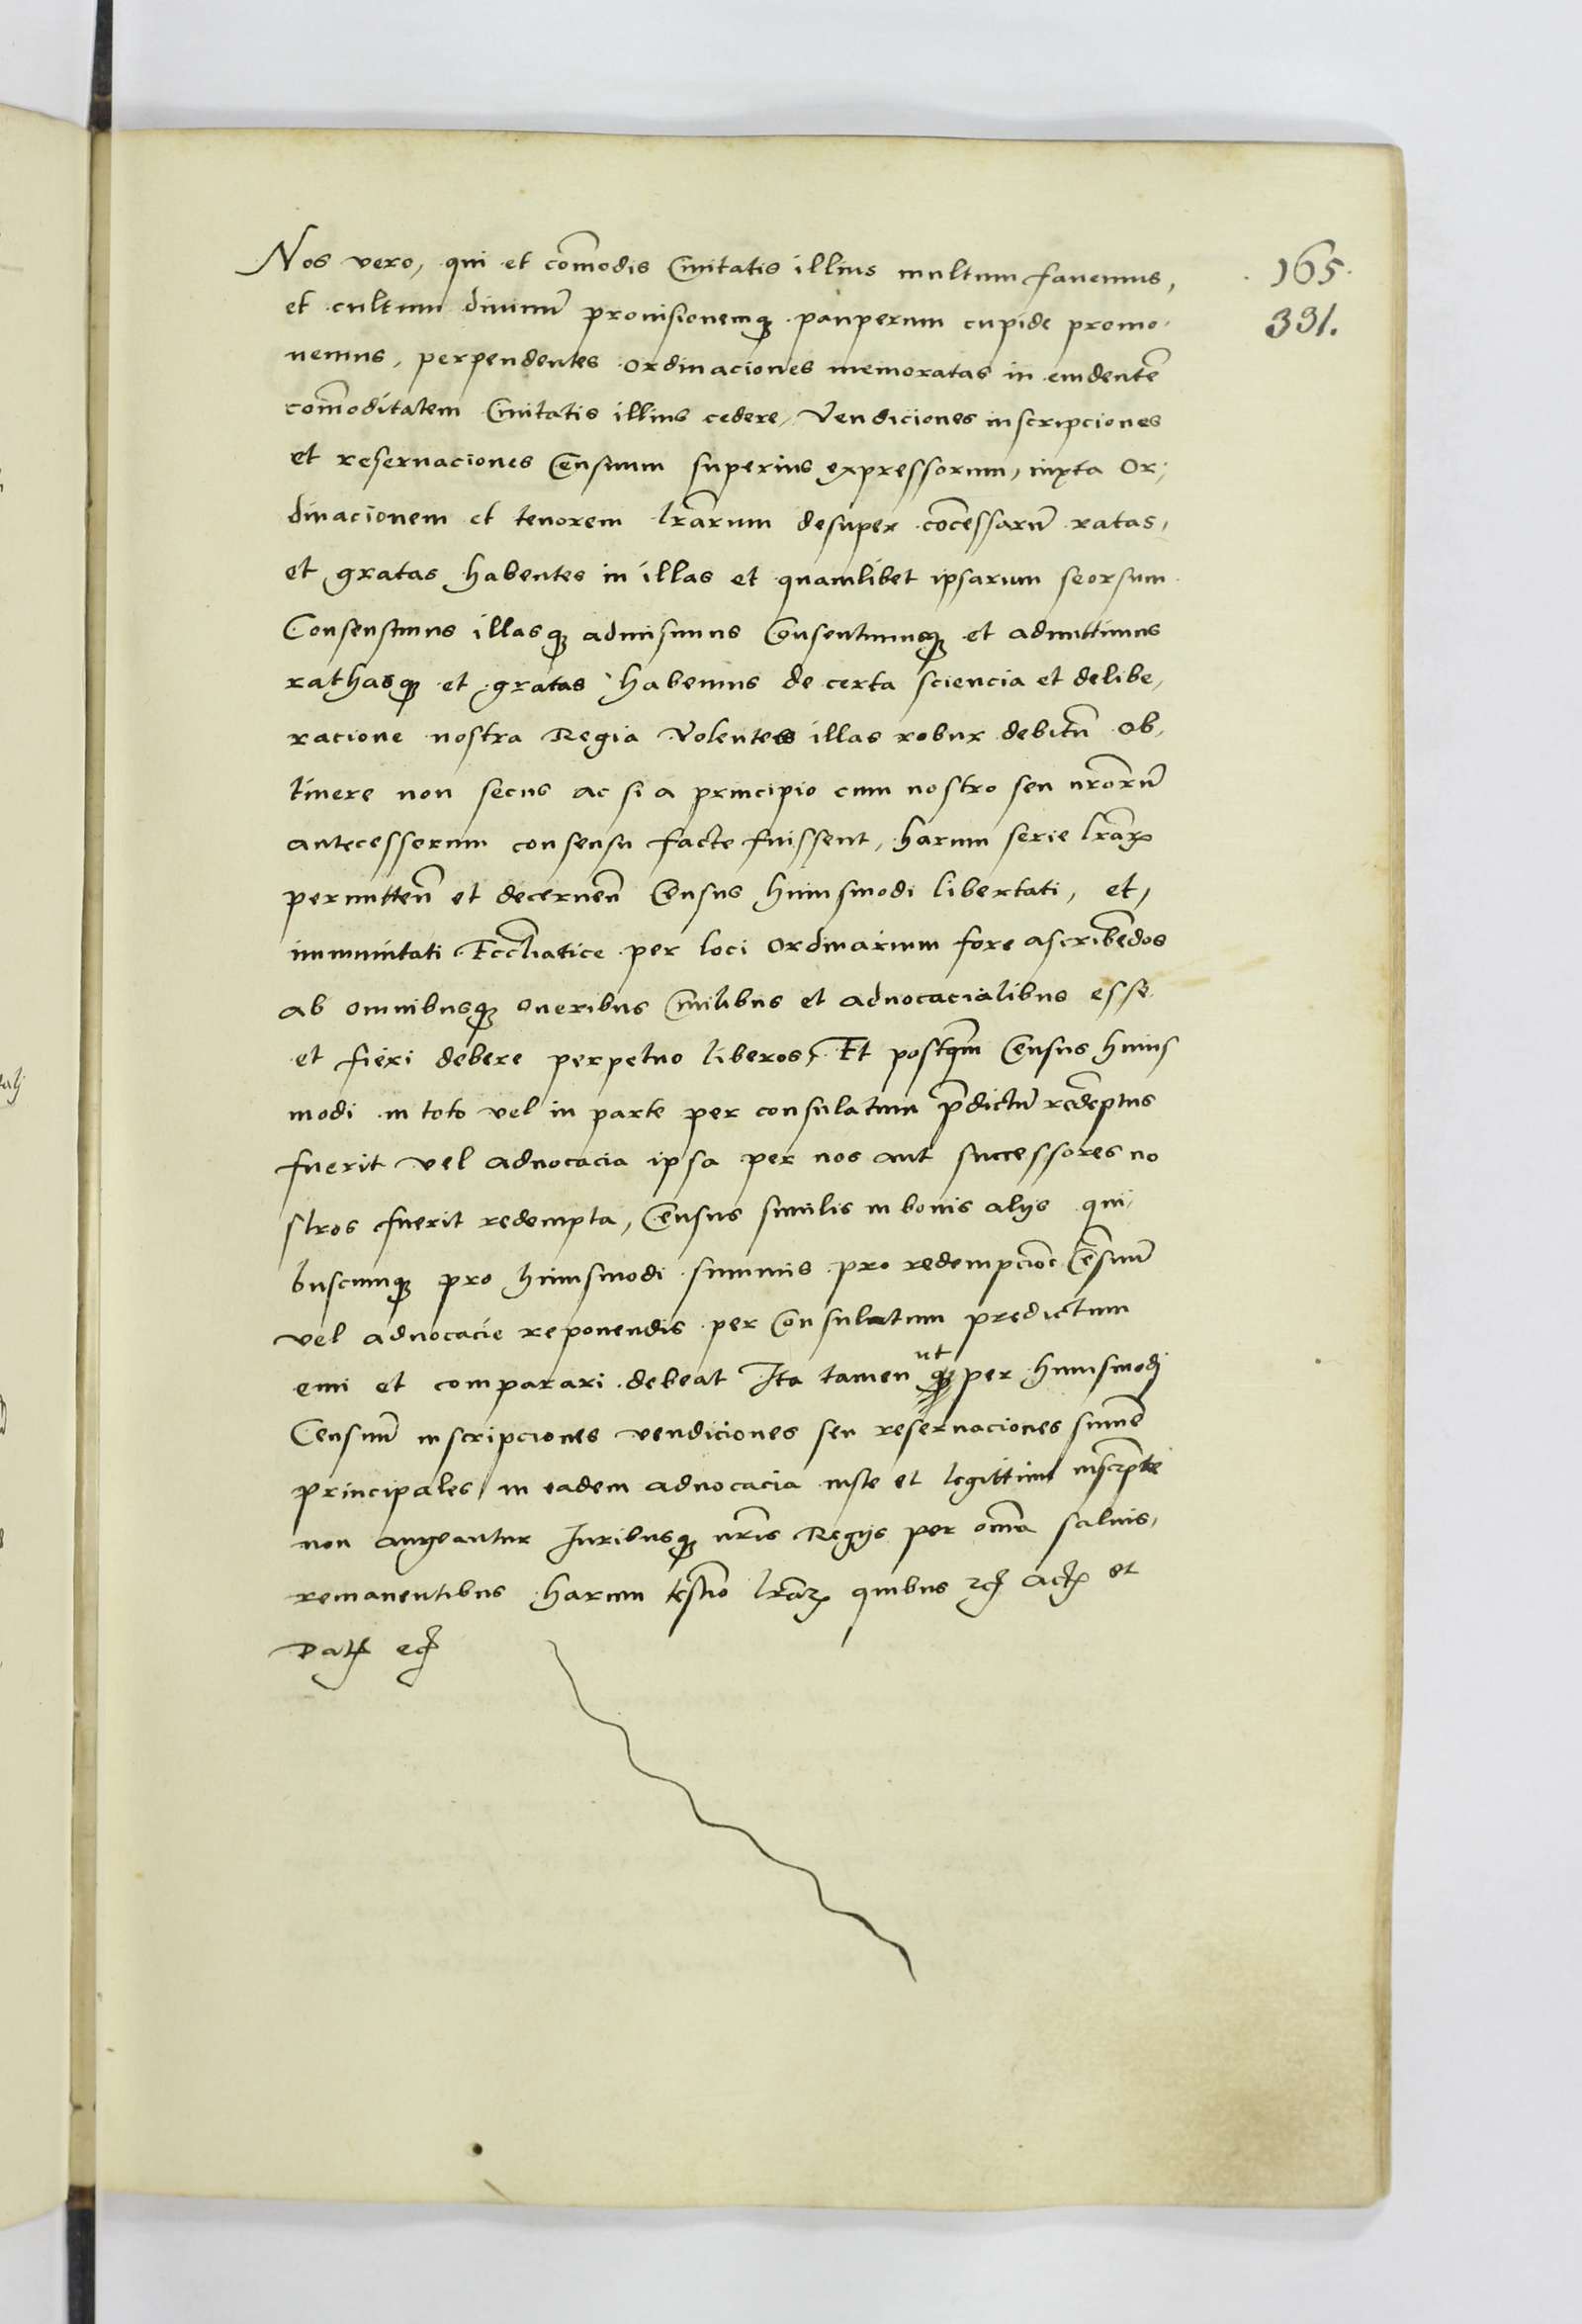 Nos vero, qui et com̃odis Civitatis illius multum favemus,
165.
et cultum divinũ provisionemqꝫ pauperum cupide promo-
331.
vemus, perpendentes ordinaciones memoratas in evidentẽ
com̃oditatem Civitatis illius cedere, Vendiciones inscripciones
et reservaciones Censuum superius expressorum, iuxta Or-
dinacionem et tenorem lr̃arum desuper cõcessarũ ratas,
et gratas habentes in illas et quamlibet ipsarum seorsum
Consensimus illasqꝫ admisimus Consentimusqꝫ et admittimus
rathasqꝫ et gratas habemus de certa sciencia et delibe-
racione nostra Regia Volentes illas robur debitũ Ob-
tinere non secus ac si a principio cum nostro seu nr̃orũ
antecessorum consensu facte fuissent, harum serie lr̃aꝝ
permitteñ et decerneñ Census huiusmodi libertati, et,
immunitati Eccl̃iatice per loci Ordinarium fore ascribẽdos
ab omnibusqꝫ Oneribus Civilibus et advocacialibus esse
et fieri debere perpetuo liberos, Et postqm̃ Census huius
modi in toto vel in parte per consulatum p̃dictũ redẽptus
fuerit vel advocacia ipsa per nos aut successores no
stros fuerit redempta, Census similis in bonis alijs qui-
buscumqꝫ pro huiusmodi summis pro redempciõe Cẽsuũ
vel advocacie reponendis per Consulatum predictum
emi et comparari debeat Ita tamen ut per huiusmodj
Censuũ inscripciones vendiciones seu reservaciones sum̃e
principales, in eadem advocacia iuste et legittime inscr̃pte
non augeantur Juribusqꝫ nr̃is Regijs per om̃ia salvis,
remanentibus harum testĩo lr̃aꝝ quibus ꝛcꝫ Actꝫ et
Datꝫ ecꝫ